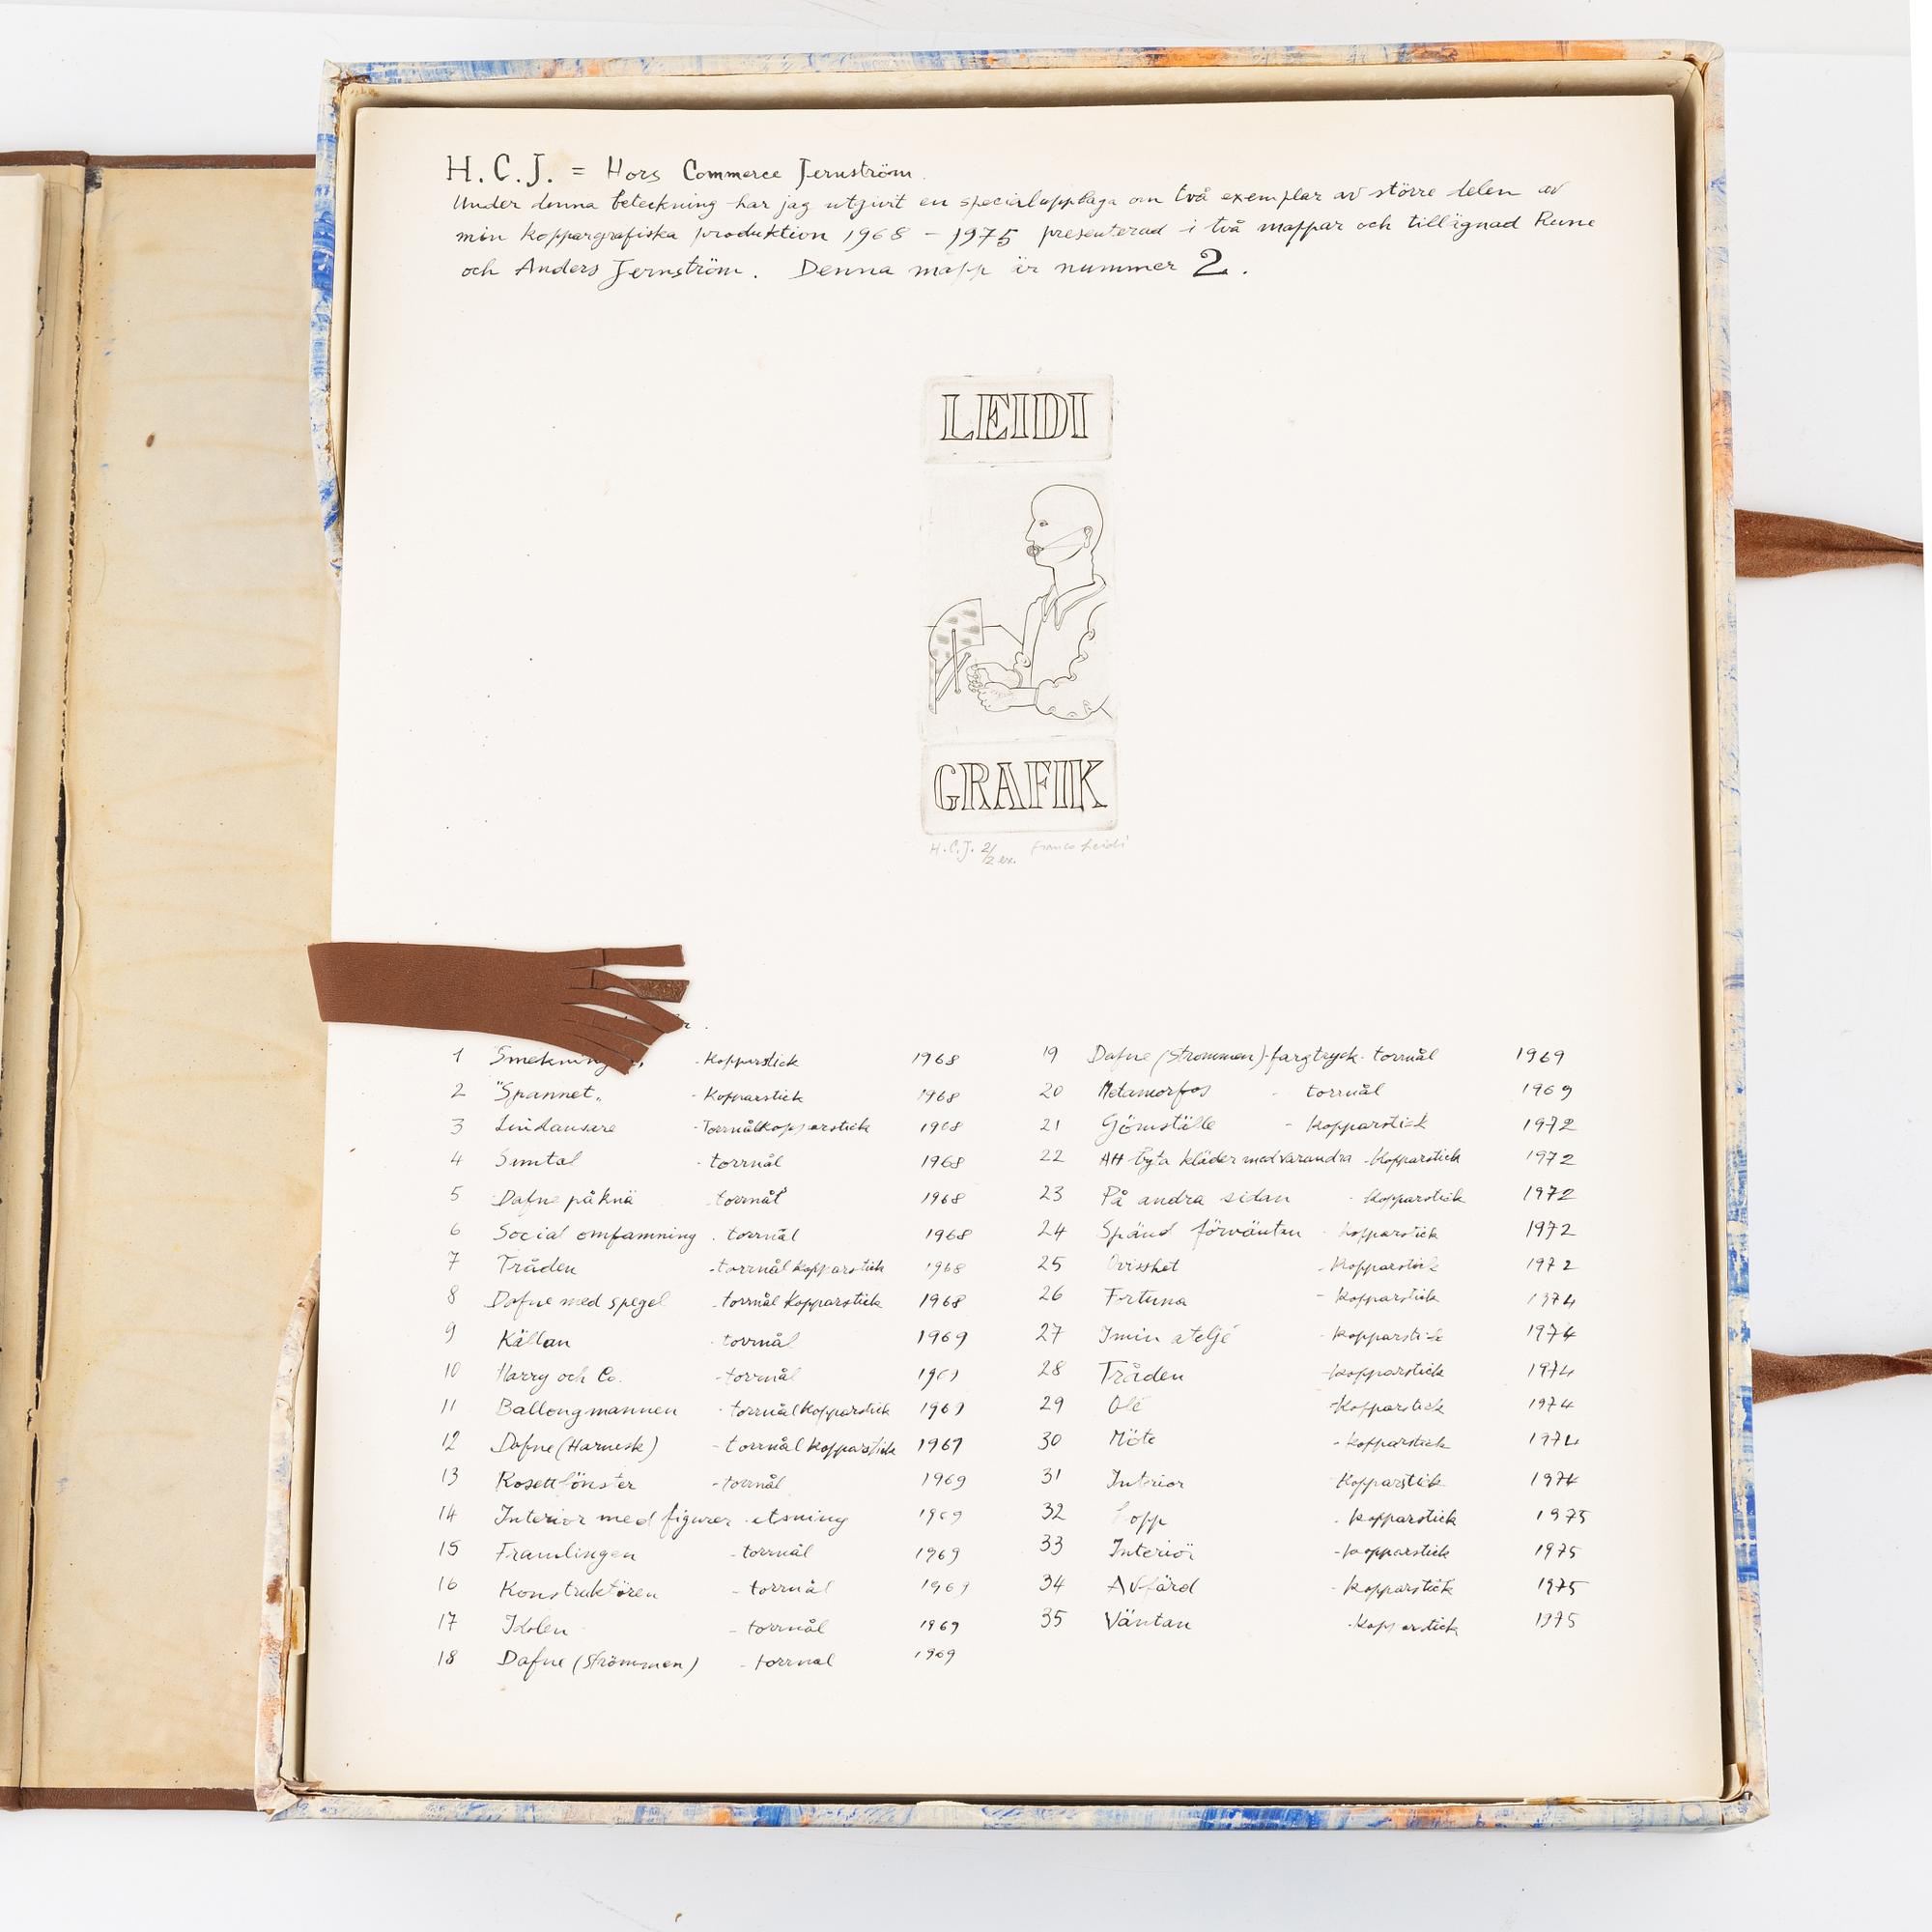 H.C.J. = Hors Commerce Jernström.
Under denna beteckning har jag utgivit en specialupplaga om två exemplar av större delen av
min koppargrafiska produktion 1968 - 1975 presenterad i två mappar och tillägnad Rune
och Anders Jernström. Denna mapp är nummer 2.
LEIDI
GRAFIK
H.C.J. 2/2 ex. Franco Leidi
1 - Kopparstick 1968
2 "Spannet" - Kopparstick 1968
3 Lindansare - Torrnålkopparstick 1968
4 Samtal - torrnål 1968
5 Dafne på knä - torrnål 1968
6 Social omfamning - torrnål 1968
7 Tråden - torrnål kopparstick 1968
8 Dafne med spegel - torrnål Kopparstick 1968
9 Källan - torrnål 1969
10 Harry och Co. - torrnål 1969
11 Ballongmannen - torrnål Kopparstick 1969
12 Dafne (Harnesk) - torrnål kopparstick 1969
13 Rosettfönster - torrnål 1969
14 Interiör med figurer - etsning 1969
15 Framlingen - torrnål 1969
16 Konstruktören - torrnål 1969
17 Idolen - torrnål 1969
18 Dafne (Strömmen) - torrnål 1969
19 Dafne (Strömmen) - färgtryck - torrnål 1969
20 Metamorfos - torrnål 1969
21 Gömställe - kopparstick 1972
22 Att byta kläder med varandra - Kopparstick 1972
23 På andra sidan - kopparstick 1972
24 Spänd förväntan - kopparstick 1972
25 Ovisshet - kopparstick 1972
26 Fortuna - kopparstick 1974
27 I min ateljé - kopparstick 1974
28 Tråden - kopparstick 1974
29 Olé - kopparstick 1974
30 Möte - kopparstick 1974
31 Interiör Kopparstick 1974
32 - kopparstick 1975
33 Interiör - kopparstick 1975
34 Avfärd - kopparstick 1975
35 Väntan - kopparstick 1975